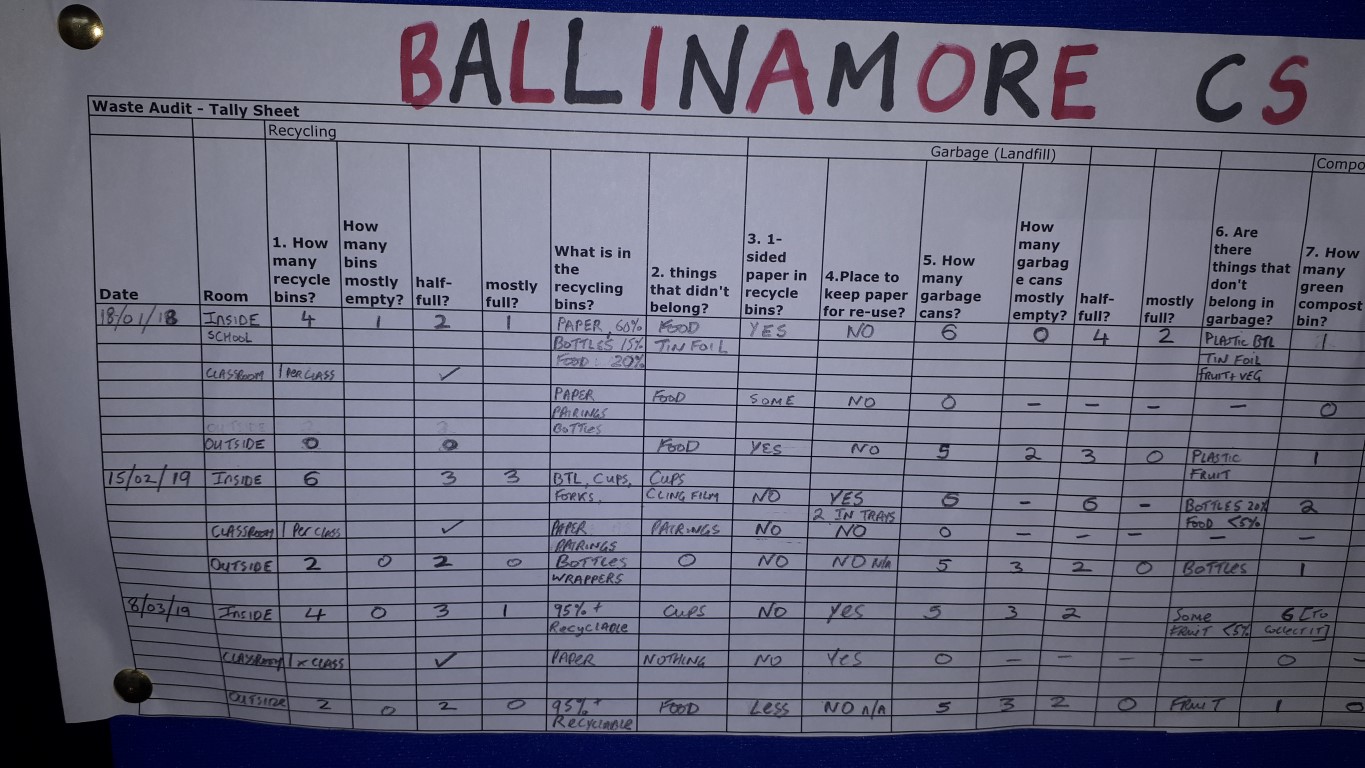 BALLINAMORE CS
Waste Audit - Tally Sheet
Recycling
Garbage (Landfill)
Compo
Date
Room
1. How many recycle bins?
How many bins mostly empty?
half-full?
mostly full?
What is in the recycling bins?
2. things that didn't belong?
3. 1-sided paper in recycle bins?
4.Place to keep paper for re-use?
5. How many garbage cans?
How many garbag e cans mostly empty?
half-full?
mostly full?
6. Are there things that don't belong in garbage?
7. How many green compost bin?
18/01/18 INSIDE 4 1 2 1 PAPER 60% FOOD YES NO 6 0 4 2 PLASTIC BTL 1
SCHOOL BOTTLES 15% TIN FOIL TIN FOIL
FOOD: 20% FRUIT+VEG
CLASSROOM 1 PER CLASS ✓
PAPER FOOD SOME NO 0 - - - - 0
PAIRINGS
BOTTLES
OUTSIDE 0 0 FOOD YES NO 5 2 3 0 PLASTIC 1
FRUIT
15/02/19 INSIDE 6 3 3 BTL, CUPS, CUPS
FORKS. CLING FILM NO YES 6 - 6 - BOTTLES 20% 2
2 IN TRAYS FOOD <5%
CLASSROOM 1 Per class ✓ PAPER PAIRINGS NO NO 0 - - - - -
PAIRINGS
OUTSIDE 2 0 2 0 BOTTLES 0 NO NO N/a 5 3 2 0 BOTTLES 1
WRAPPERS
8/03/19 INSIDE 4 0 3 1 95% + CUPS NO Yes 5 3 2 Some 6 [TO
Recyclable FRUIT <5% COLLECT IT]
CLASSROOM 1 x CLASS ✓ PAPER NOTHING NO Yes 0 - - - - 0 -
OUTSIDE 2 0 2 0 95% + FOOD Less NO n/a 5 3 2 0 FRUIT 1 0
Recyclable